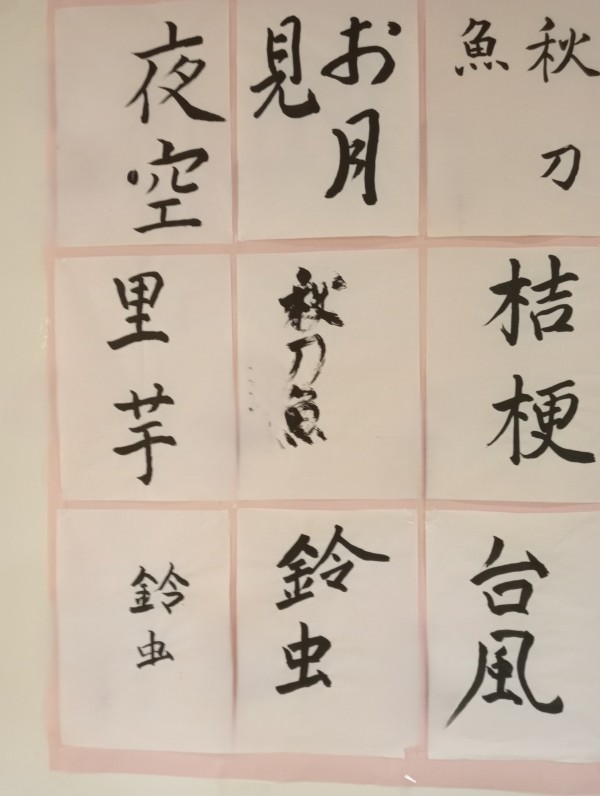 夜空
お月
見
秋刀
魚
里芋
秋刀魚
桔梗
鈴虫
鈴虫
台風